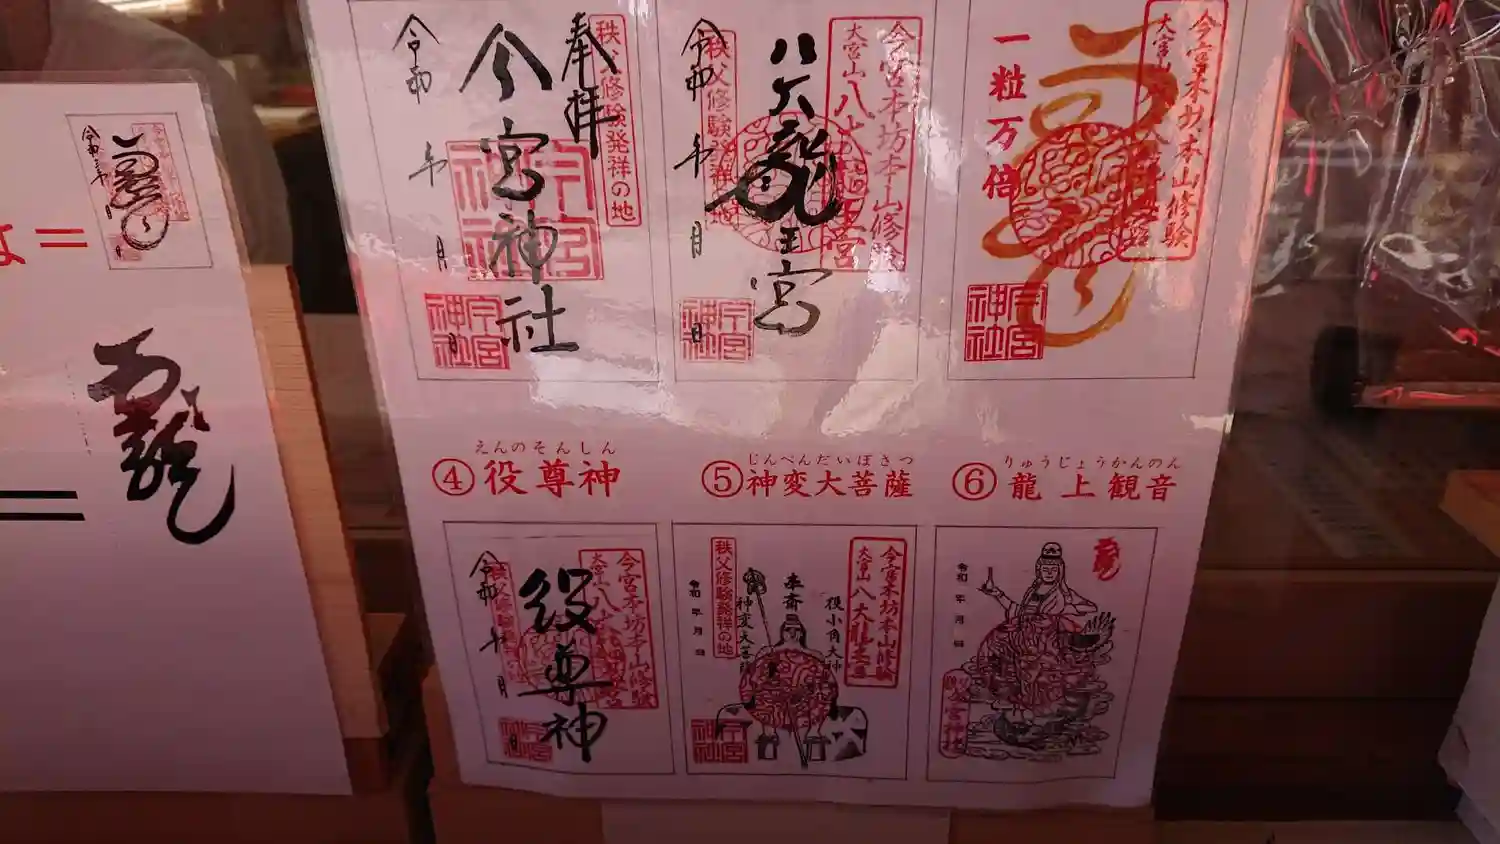 奉拝
秩父修験発祥の地
今宮神社
令和 年 月 日
今宮本坊本山修験
大宮山八大龍王宮
八大龍王宮
秩父修験発祥の地
令和 年 月 日
今宮神社
今宮本坊本山修験
一粒万倍
今宮神社
④役尊神
えんのそんしん
⑤神変大菩薩
じんべんだいぼさつ
⑥龍上観音
りゅうじょうかんのん
今宮本坊本山修験
役尊神
秩父修験発祥の地
令和 年 月 日
今宮神社
今宮本坊本山修験
大宮山八大龍王宮
役小角大神
奉斎
神変大菩薩
秩父修験発祥の地
令和 年 月 日
今宮神社
令和 年 月 日